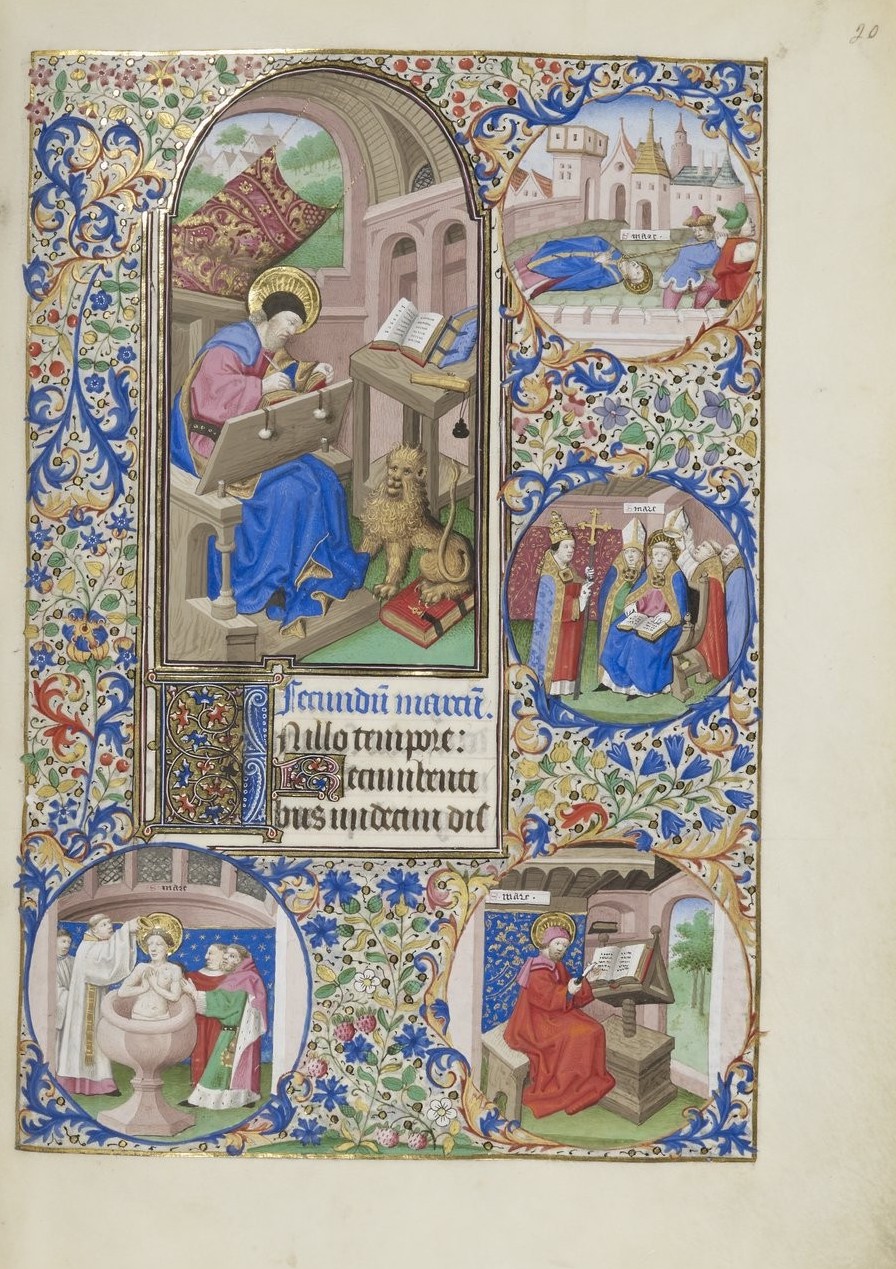 20
S marc ·
S marc
Secundū marcū.
IN illo tempore:
Recumbenti
bus undecim dis
S marc
S marc ·